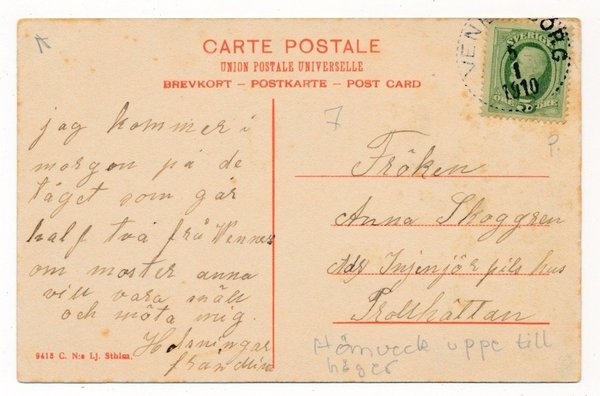 CARTE POSTALE
UNION POSTALE UNIVERSELLE
BREVKORT – POSTKARTE – POST CARD
VENERSBORG
1
1910
SVERIGE
ÖRE 5 ÖRE
7
P.
jag kommer i
morgon på de
tåget som går
half två frå Venner
om moster anna
vill vara snäll
och möta mig.
Helsningar
från
Fröken
Anna Skoggren
Adr Injenjör pils hus
Trollhättan
Hörnveck uppe till
höger
9415 C. N:s Lj. Sthlm.